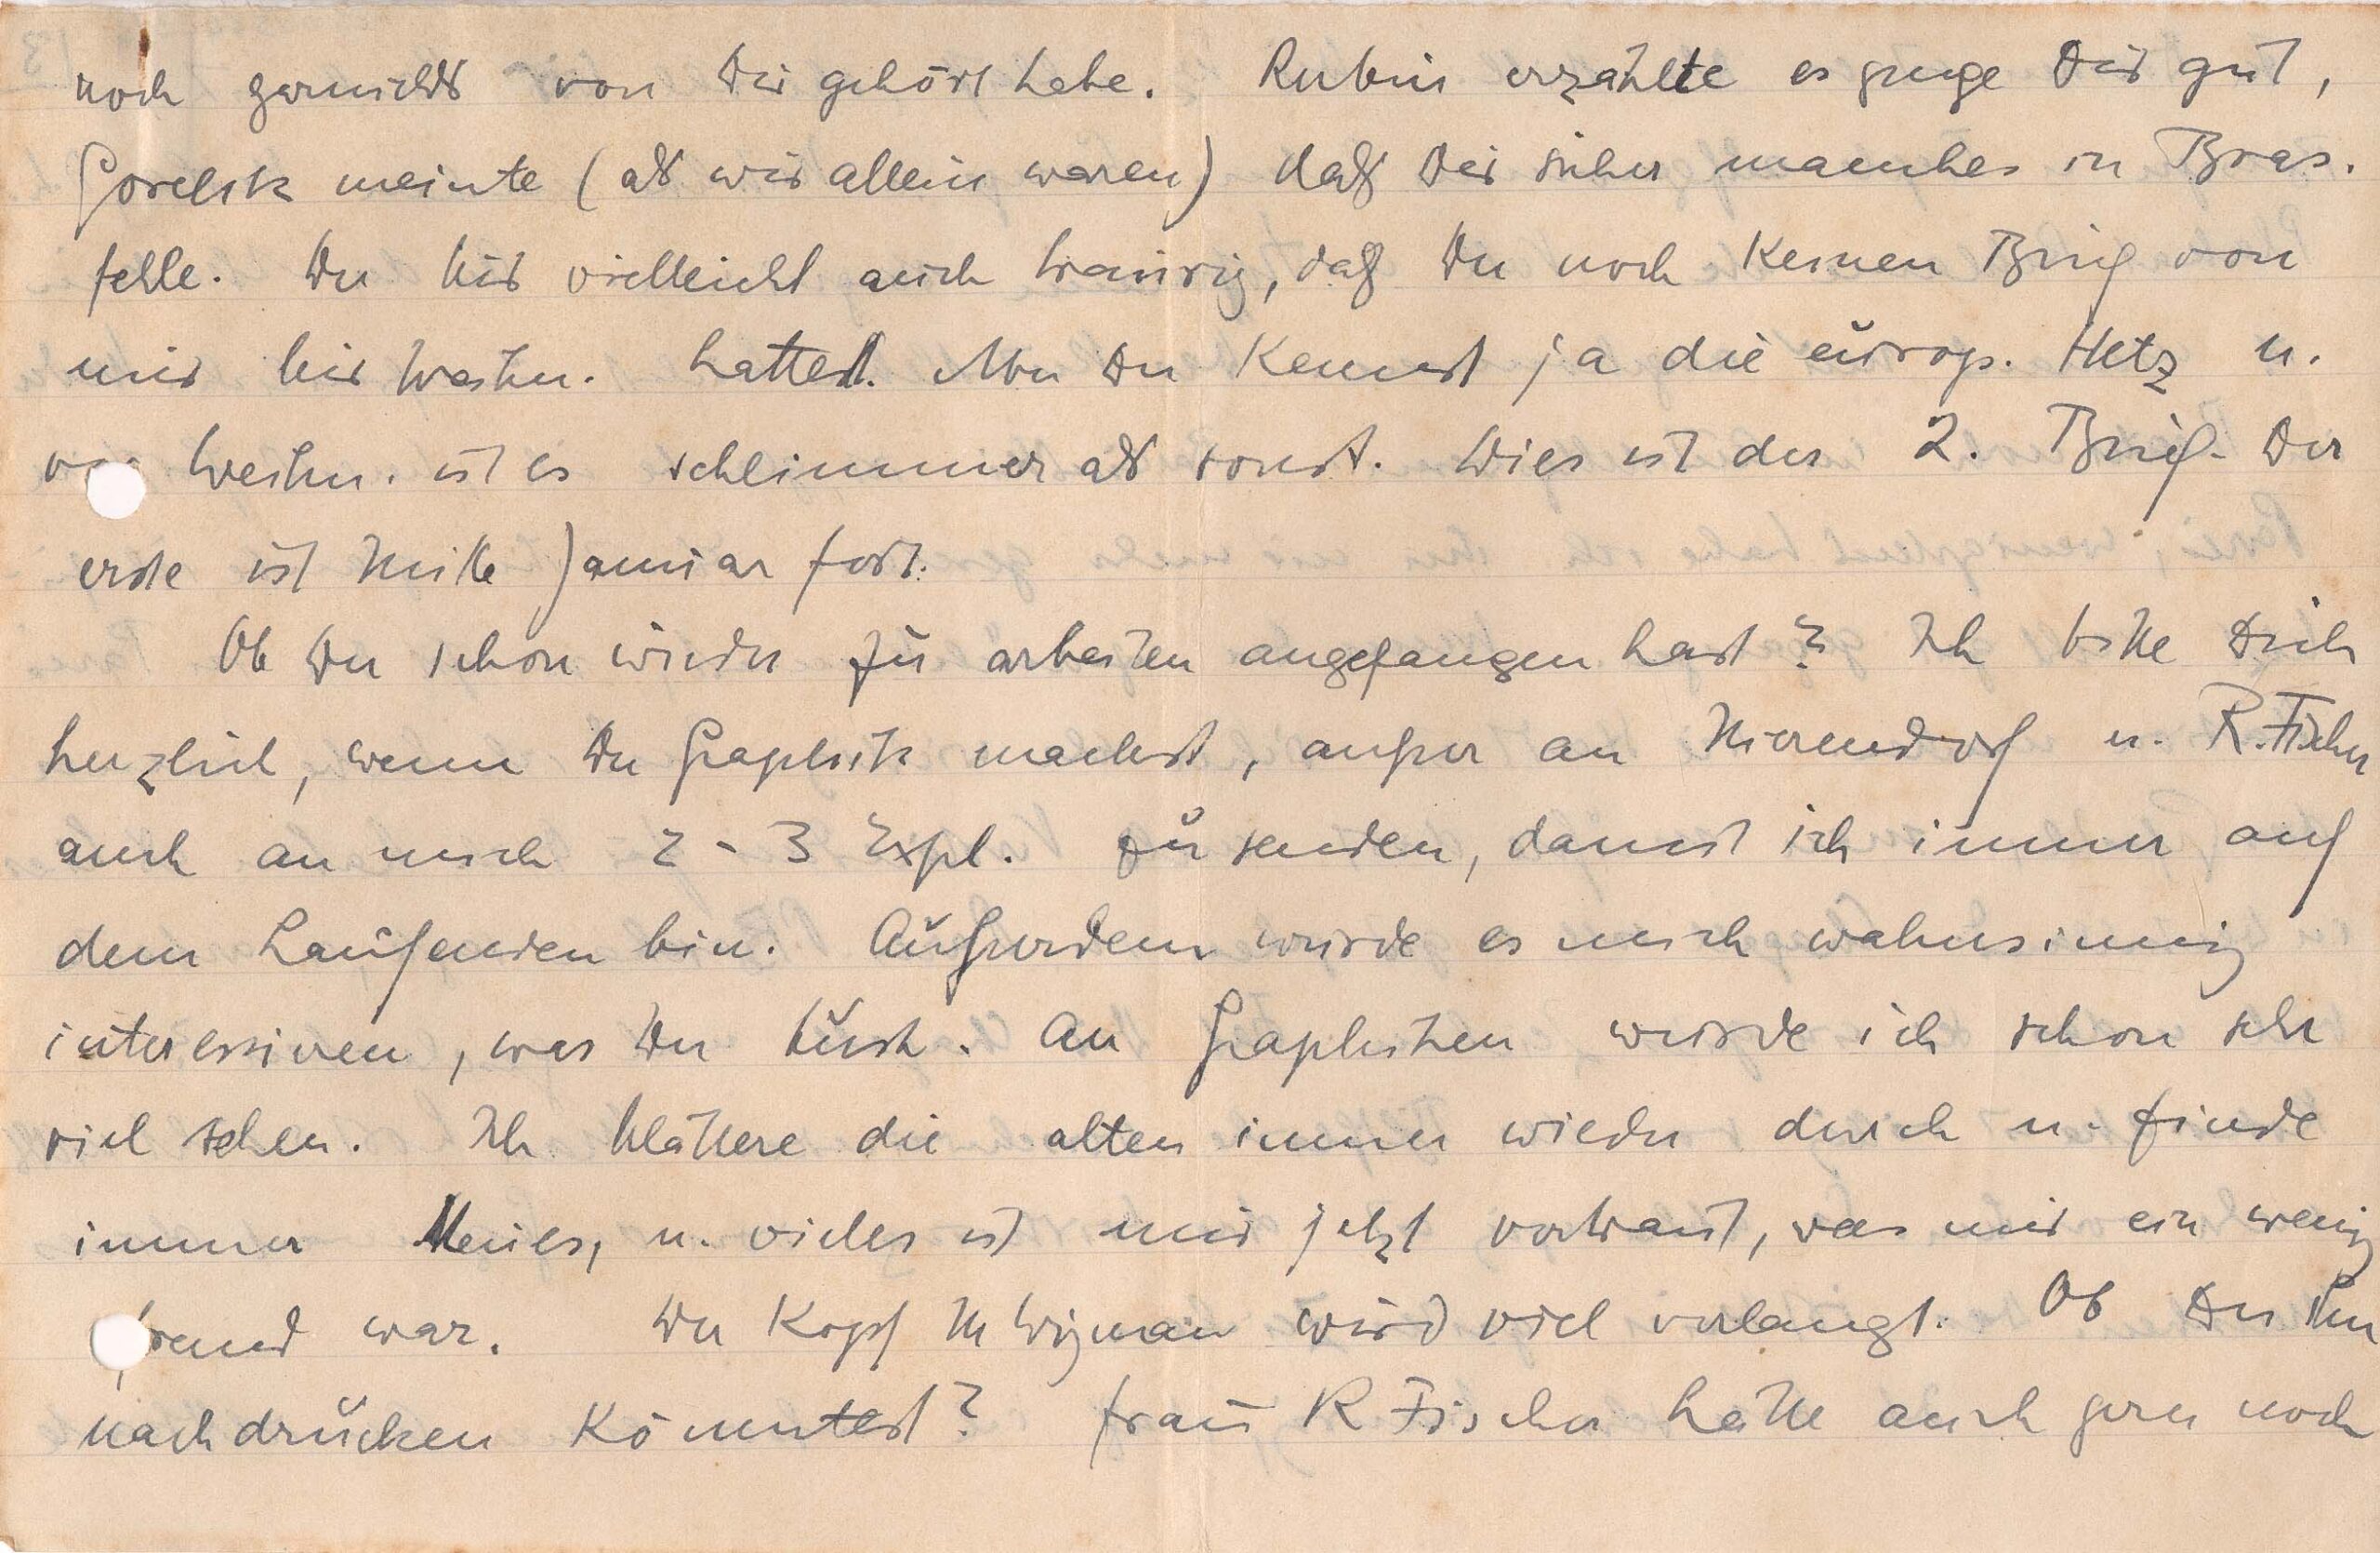 noch garnichts von Dir gehört habe. Rubin erzählte es ginge Dir gut,
Gorelik meinte (als wir allein waren) daß Dir sicher manches in Bras.
fehle. Du bist vielleicht auch traurig, daß Du noch keinen Brief von
mir bis Weihn. hattest. Nun Du kennst ja die europ. Hetz u.
vor Weihn. ist es schlimmer als sonst. Dies ist der 2. Brief. Der
erste ist Mitte Januar fort.
Ob Du schon wieder zu arbeiten angefangen hast? Ich bitte Dich
herzlich, wenn Du Graphik machst, außer an Nierendorf u. R. Fischer
auch an mich 2-3 Expl. zu senden, damit ich immer auf
dem Laufenden bin. Außerdem würde es mich wahnsinnig
interessieren, was Du tust. An Graphiken würde ich schon sehr
viel sehen. Ich blättere die alten immer wieder durch u. finde
immer Neues, u. vieles ist mir jetzt vertraut, was mir ein wenig
fremd war. Der Kopf M Wigman wird viel verlangt. Ob Du ihn
nachdrucken könntest? Frau R Fischer hätte auch gern noch